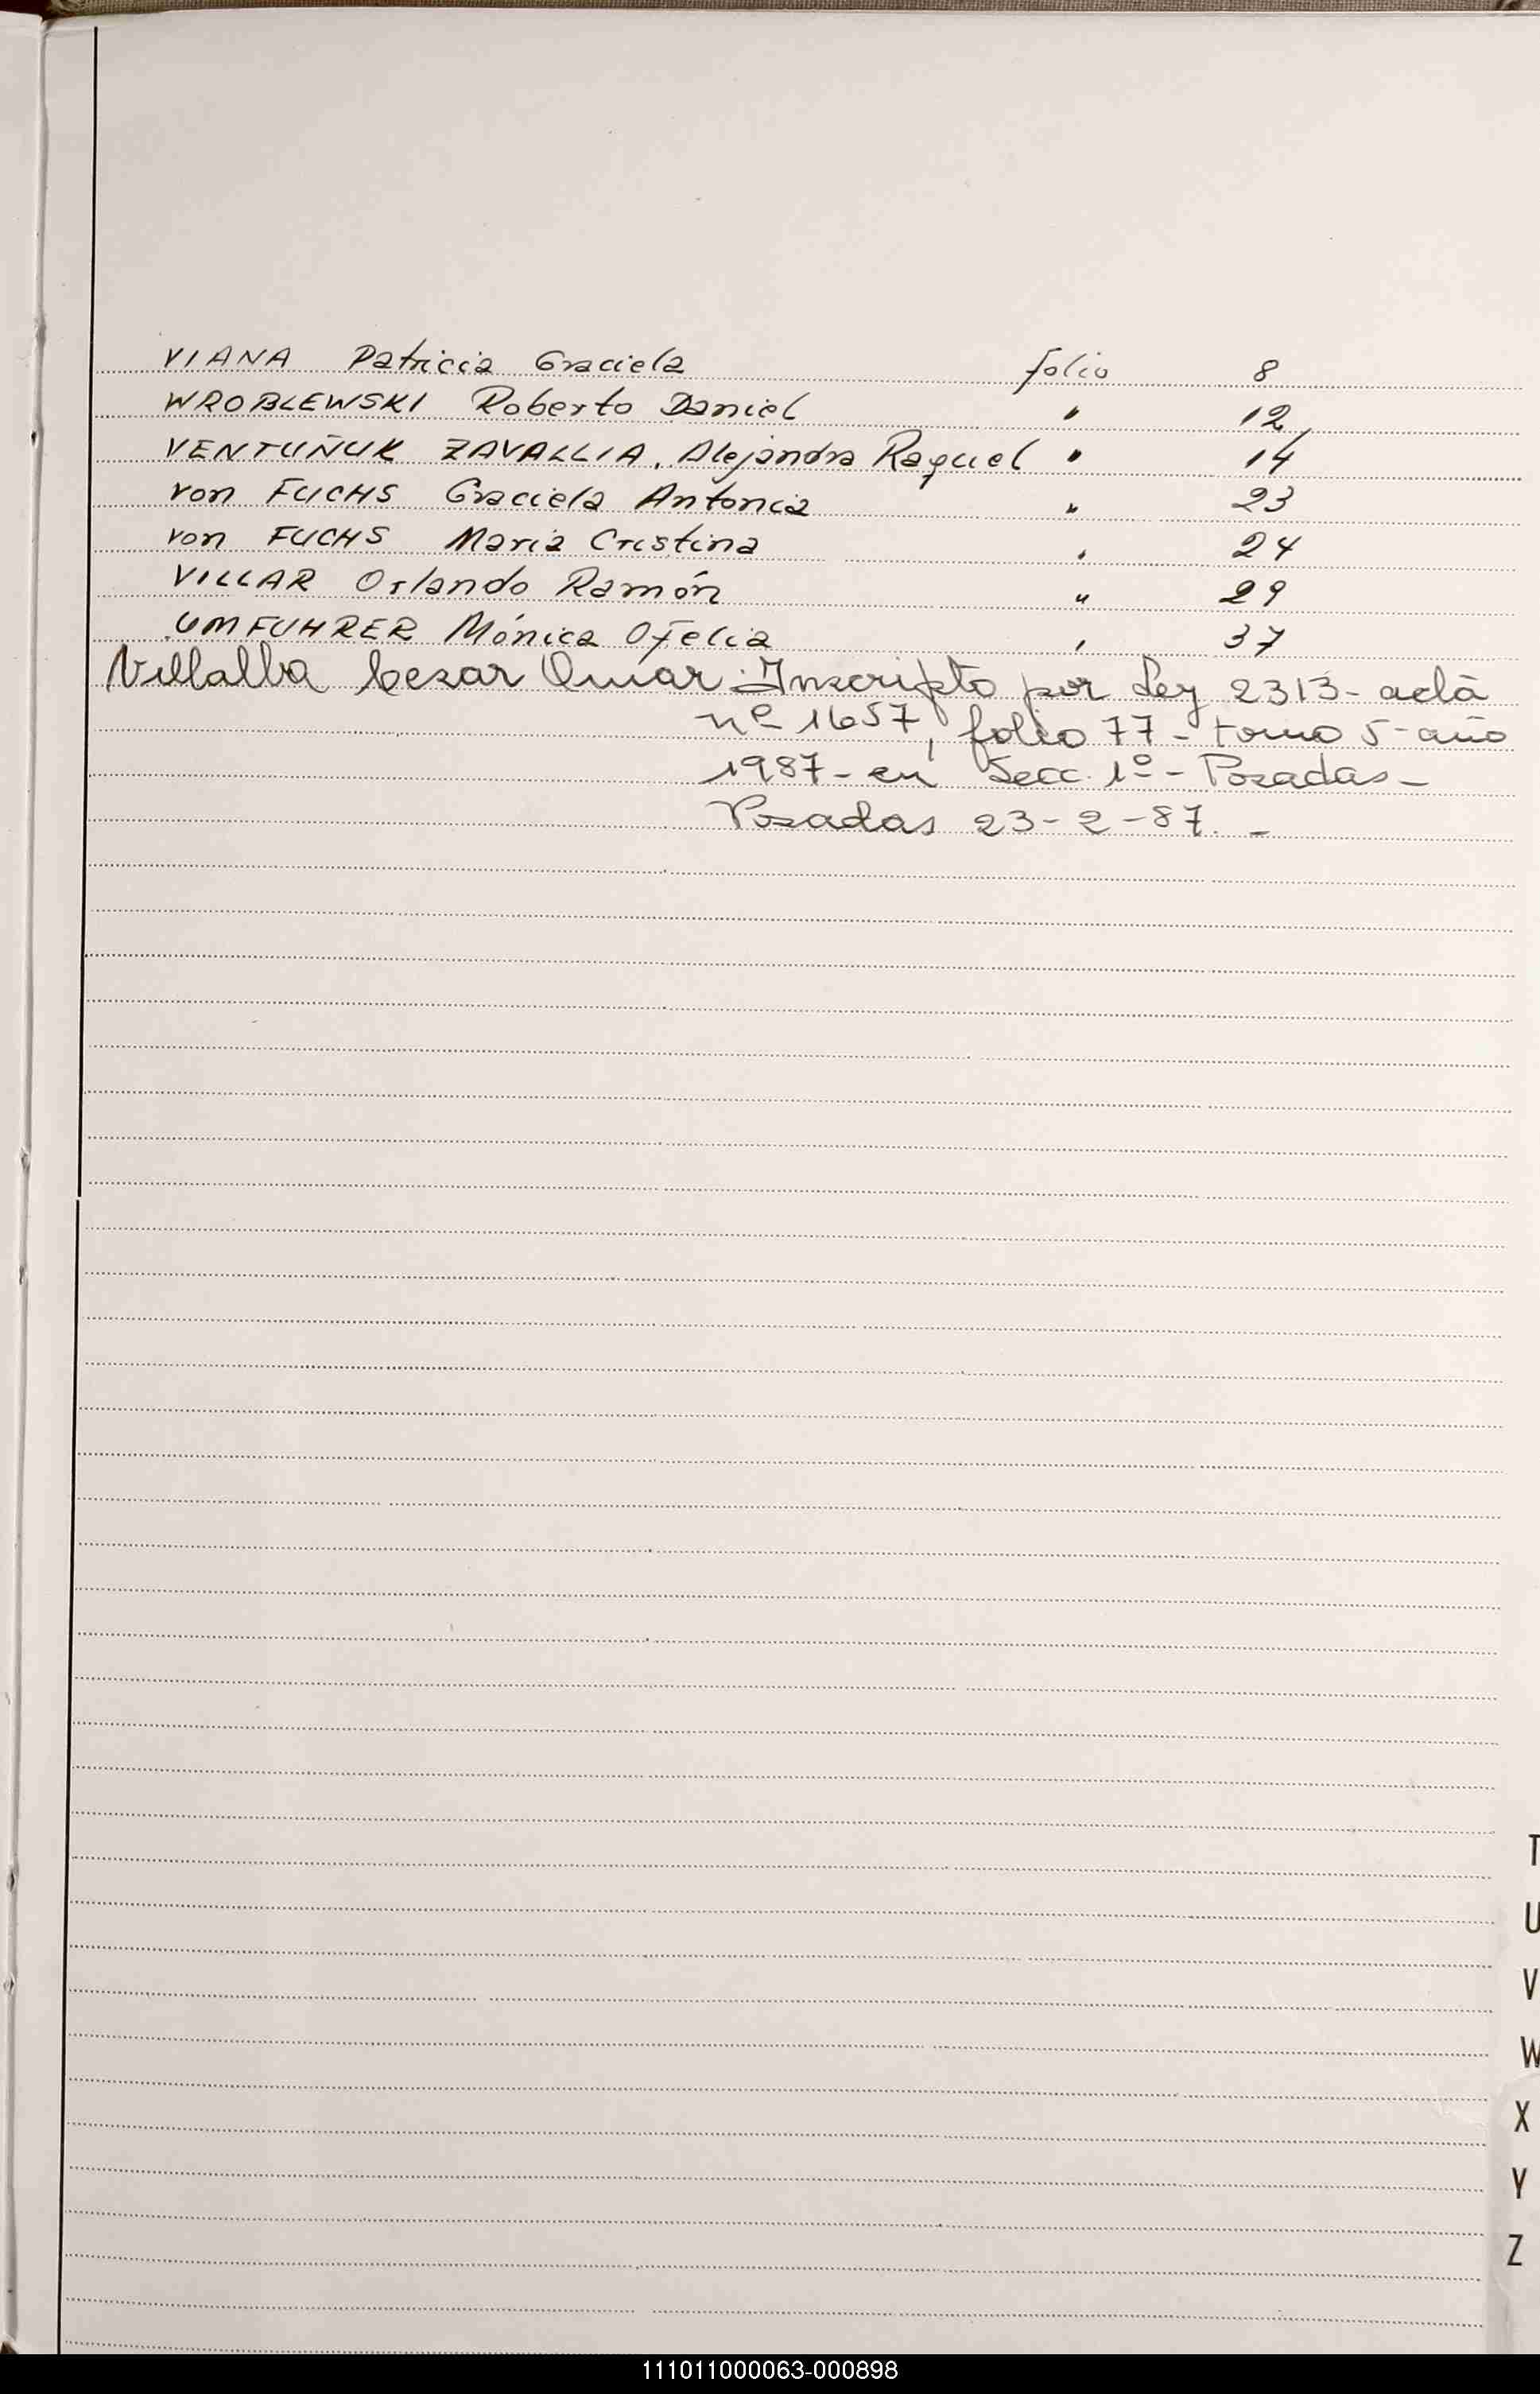 VIANA Patricia Graciela folio 8
WROBLEWSKI Roberto Daniel " 12
VENTUÑUK ZAVALLIA, Alejandra Raquel " 14
von FUCHS Graciela Antonia " 23
von FUCHS María Cristina " 24
VILLAR Orlando Ramón " 29
UMFUHRER Mónica Ofelia " 37
Villalba Cesar Omar - Inscripto por Ley 2313 - acta
nº 1657, folio 77 - tomo 5 - año
1987 - en Secc. 1º - Posadas -
Posadas 23-2-87. -
T
U
V
W
X
Y
Z
111011000063-000898